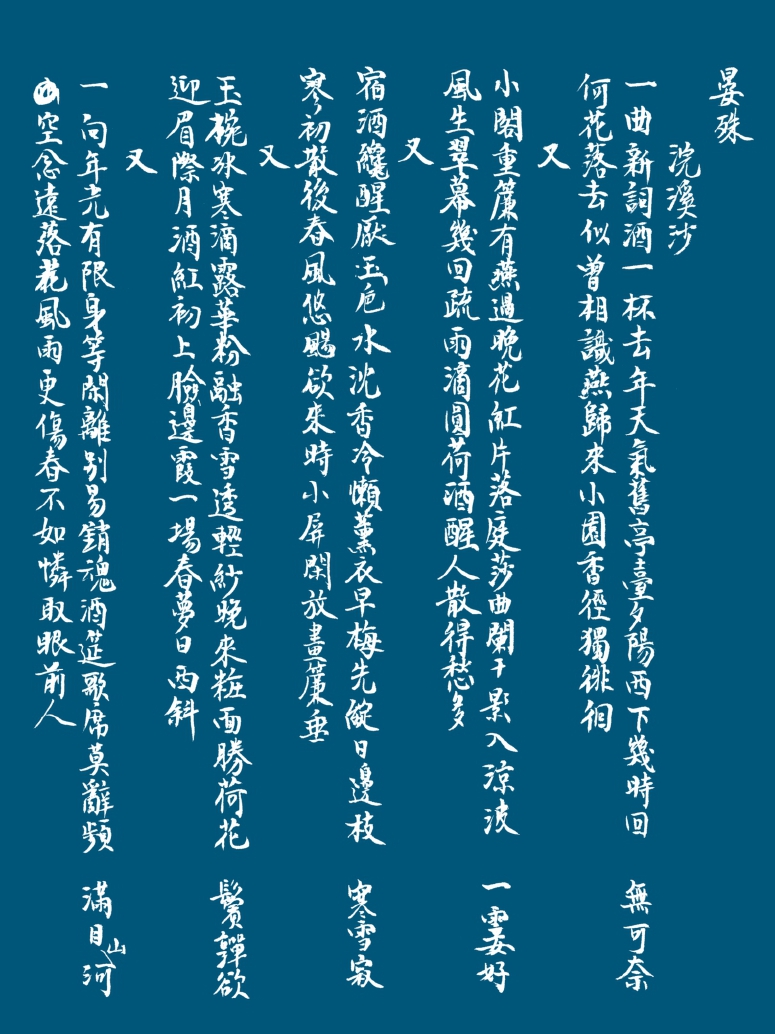 晏殊
浣溪沙
一曲新詞酒一杯去年天氣舊亭臺夕陽西下幾時回　無可奈
何花落去似曾相識燕歸來小園香徑獨徘徊
又
小閣重簾有燕過晚花紅片落庭莎曲闌干影入涼波　一霎好
風生翠幕幾回疏雨滴圓荷酒醒人散得愁多
又
宿酒纔醒厭玉卮水沈香冷懶薰衣早梅先綻日邊枝　寒雪寂
寥初散後春風悠颺欲來時小屏閑放畫簾垂
又
玉椀冰寒滴露華粉融香雪透輕紗晚來粧面勝荷花　鬢嚲欲
迎眉際月酒紅初上臉邊霞一場春夢日西斜
又
一向年光有限身等閑離別易銷魂酒筵歌席莫辭頻　滿目山河
空念遠落花風雨更傷春不如憐取眼前人